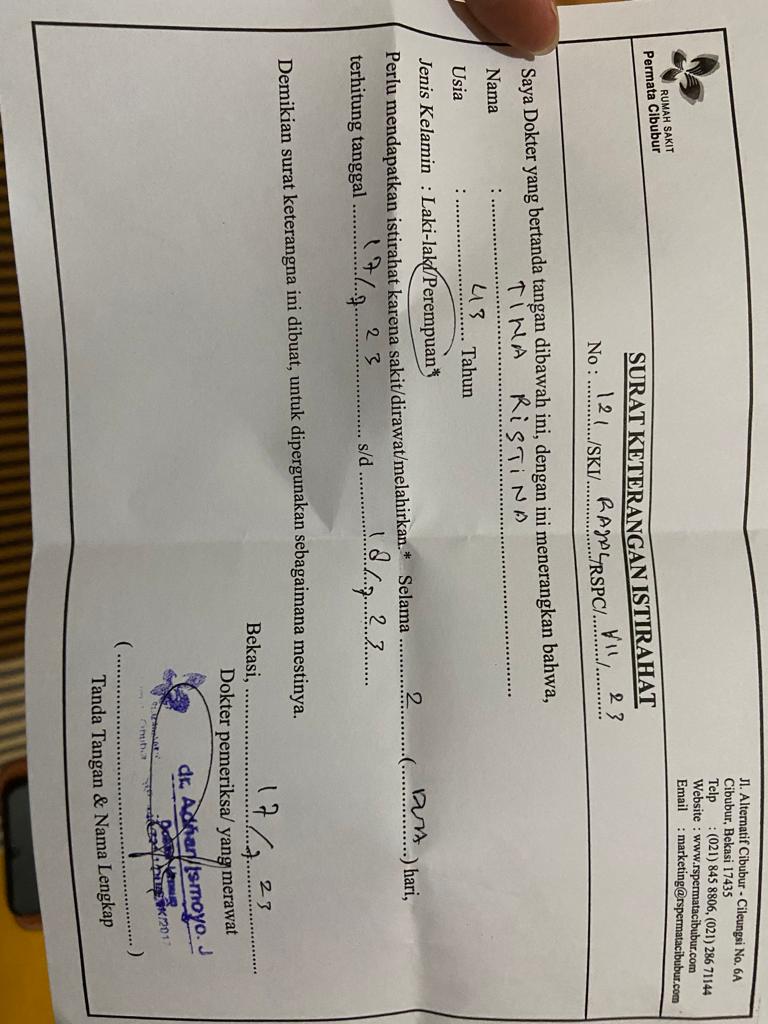 RUMAH SAKIT
Permata Cibubur
Jl. Alternatif Cibubur - Cileungsi No. 6A
Cibubur, Bekasi 17435
Telp : (021) 845 8806, (021) 286 71144
Website : www.rspermatacibubur.com
Email : marketing@rspermatacibubur.com
SURAT KETERANGAN ISTIRAHAT
No : 121 /SKI/ /RSPC/ VII / 23
Saya Dokter yang bertanda tangan dibawah ini, dengan ini menerangkan bahwa,
Nama : TINA RISTINA
Usia : 43 Tahun
Jenis Kelamin : Laki-laki/Perempuan*
Perlu mendapatkan istirahat karena sakit/dirawat/melahirkan.* Selama 2 ( DUA ) hari,
terhitung tanggal 17/7 23 s/d 18/7 23
Demikian surat keterangna ini dibuat, untuk dipergunakan sebagaimana mestinya.
Bekasi, 17/7 23
Dokter pemeriksa/ yang merawat
dr. Adhari Ismoyo. J
(........................)
Tanda Tangan & Nama Lengkap